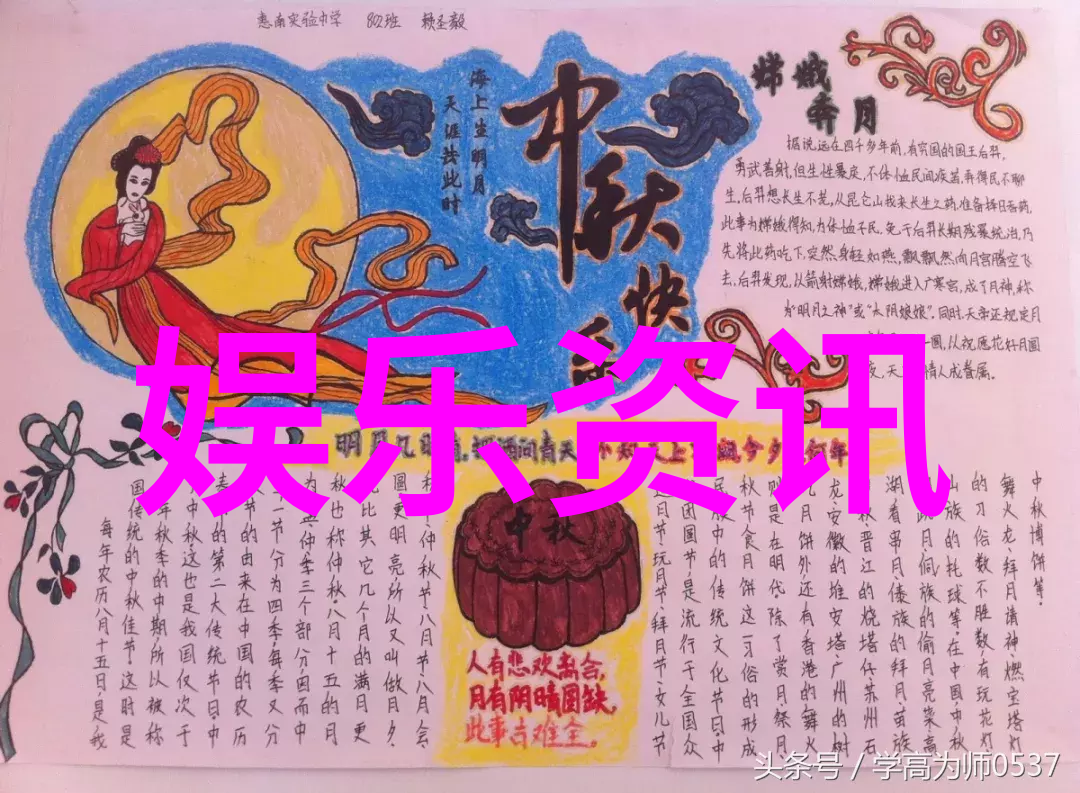 惠南实验中学 802班 赖圣毅
海上生明月
天涯共此时
中秋快乐
嫦娥
奔月
据说远在四千多年前,有穷国的国王后羿,
勇武善射,但生性暴戾,不体恤民间疾苦,弄得民不聊
生。后羿想长生不老,从昆仑山找来长生之药,准备择日吞药,
此事为嫦娥得知,为体恤平民,免于后羿长期残暴统治,乃
先将此药吃下,突然身轻如燕,飘飘然向月宫腾空飞
去,后羿发现,以箭射嫦娥,嫦娥进入广寒宫,成了月神,称
为“明月之神”或“太阴娘娘”。同时,天帝还规定月
一圆,从祝愿花好月圆
夜,天 情人成眷属。
娱乐资讯
明月几时 酒问青天 不知天上 今夕 何年
中秋
人有悲欢离合,
月有阴晴圆缺,
此事古难全。
每年农历八月十五日,是我
国传统的中秋佳节。这时是
年秋季的中期,所以被称
中秋。这也是我国仅次于
春 的第二大传统节日。中
节的由来在中国的农历
一节分为四季,每季又分
为 仲季三个部分,因而中
秋也称仲秋。八月十五的月
比其它几个月的满月更
圆,更明亮,所以又叫做月夕,
秋 仲秋节、八月节、八月会、
追月节、玩月节、拜月节、女儿节
团圆节,是流行于全国众
民族中的传统文化节日,中
秋节食月饼这一习俗的形成
则是在明代。除了赏月、祭月、
吃月饼外,还有香港的舞火
龙、安徽的堆宝塔、广州的树
秋、晋江的烧塔仔、苏州石
湖看串月、傣族的拜月、苗族
跳月、侗族的偷月亮菜、高
山族的托球等。在中国,中秋
的习俗数不胜数,有玩花灯、
舞火龙、拜月请神、燃宝塔灯、
中秋博饼等。
头条号 / 学高为师0537